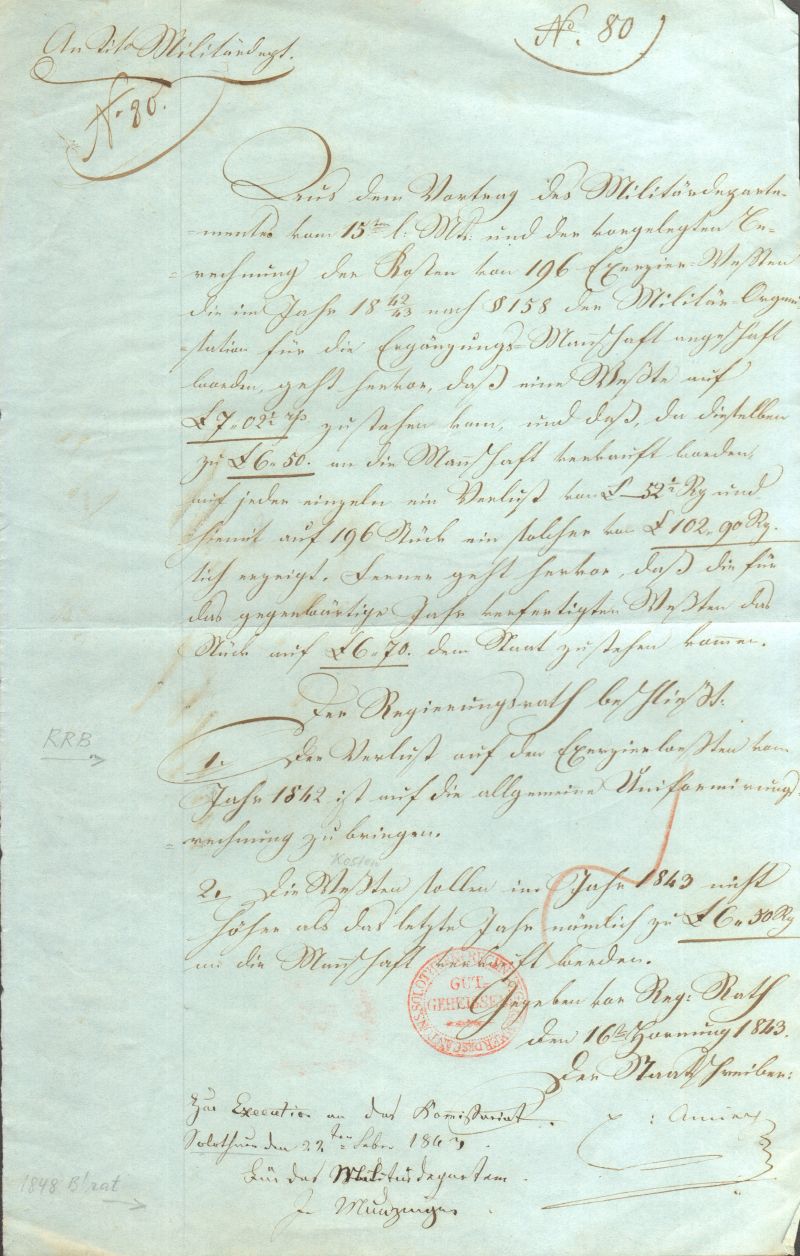 No. 80
An Tit. Militärdept.
No. 80.
Aus dem Vortrag des Militärdeparte-
-mentes vom 15ten l: Mts. und der vorgelegten Be-
=rechnung der Kosten von 196 Exerzier-Westen
die im Jahr 18 42/43 nach § 158 der Militär-Organi-
-sation für die Ergänzungs-Mannschaft angeschafft
worden, geht hervor, daß eine Weste auf
£ 7 „ 02½ rp zustehen kam, und daß, da dieselben
zu £ 6 „ 50. an die Mannschaft verkauft worden,
auf jeder einzeln ein Verlust von £ – 52½ Rp und
hiemit auf 196 Stück ein solcher von £ 102 „ 90 Rp.
sich erzeigt. Ferner geht hervor, daß die für
das gegenwärtige Jahr verfertigten Westen das
Stück auf £ 6 „ 70. dem Staat zustehen kommen.
Der Regierungsrath beschließt:
RRB
1. Der Verlust auf den Exerzierwesten vom
Jahr 1842 ist auf die allgemeine Uniformirungs-
=rechnung zu bringen.
Kosten
2. Die Westen sollen im Jahr 1843 nicht
höher als das letzte Jahr nämlich zu £ 6 „ 50 Rp
an die Mannschaft verkauft werden.
GUT-
GEHEISSEN
Gegeben vor Reg: Rath
den 16ten Hornung 1843.
Der Staatschreiber:
Amiet
Zur Execution an das Kommissariat.
Solothurn den 22ten Feber 1843.
Für das Militärdepartem.
J. Munzinger
1848 B'rat